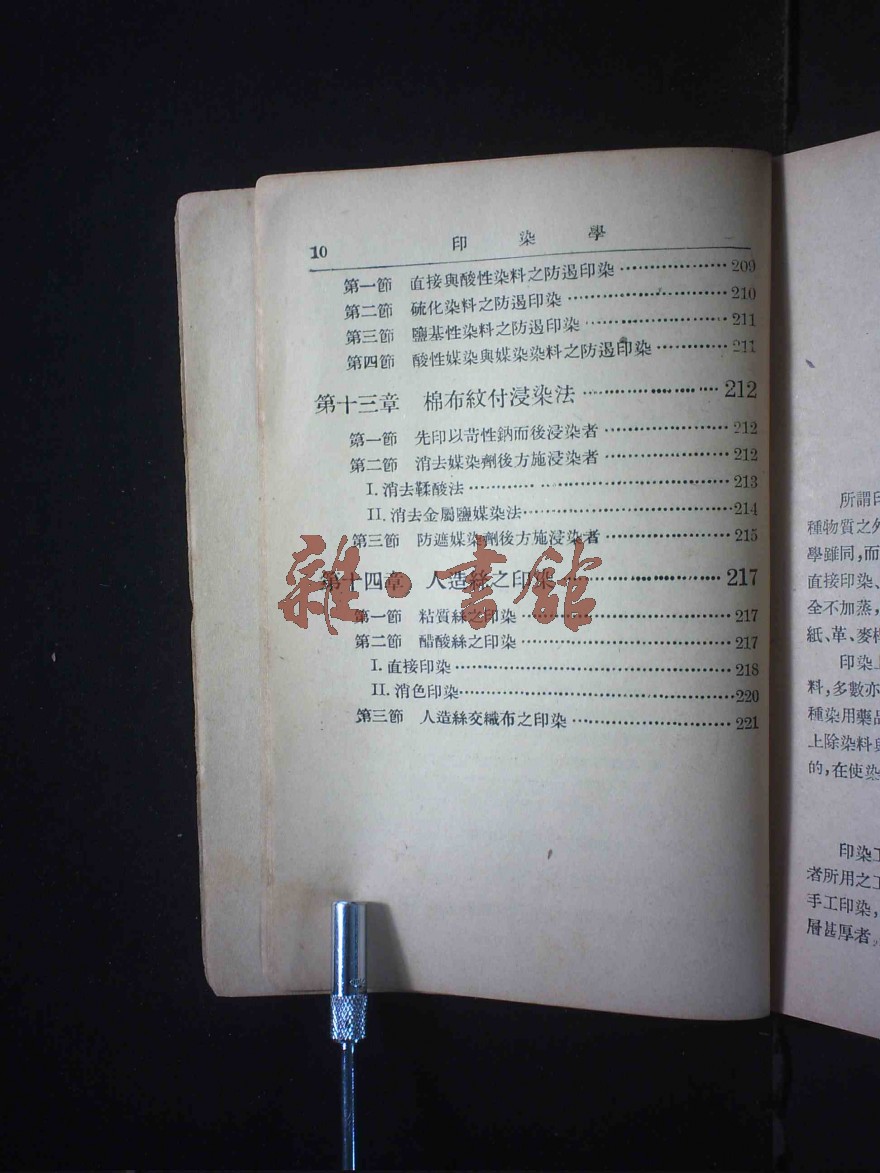 10 印染學
第一節 直接與酸性染料之防遏印染 209
第二節 硫化染料之防遏印染 210
第三節 鹽基性染料之防遏印染 211
第四節 酸性媒染與媒染染料之防遏印染 211
第十三章 棉布紋付浸染法 212
第一節 先印以苛性鈉而後浸染者 212
第二節 消去媒染劑後方施浸染者 212
I. 消去鞣酸法 213
II. 消去金屬鹽媒染法 214
第三節 防遮媒染劑後方施浸染者 215
第十四章 人造絲之印染 217
第一節 粘質絲之印染 217
第二節 醋酸絲之印染 217
I. 直接印染 218
II. 消色印染 220
第三節 人造絲交織布之印染 221
雜·書館
所謂印
種物質之外
學雖同,而
直接印染、
全不加蒸,
紙、革、麥
印染
料,多數亦
種染用藥品
上除染料與
的,在使染
印染工
者所用之工
手工印染,
層甚厚者,